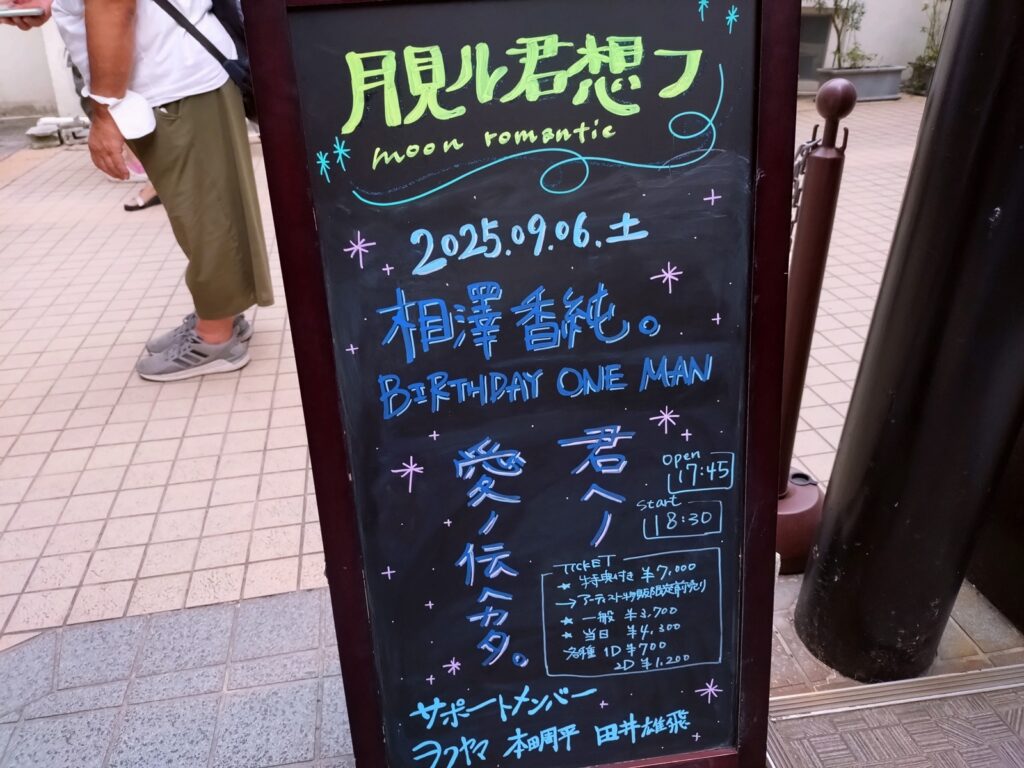 月見ル君想フ
moon romantic
2025.09.06.土
相澤香純。
BIRTHDAY ONE MAN
君へノ
愛ノ伝へカタ。
open
17:45
start
18:30
TICKET
★ 特典付き ¥7,000
→ アーティスト物販限定前売り
★ 一般 ¥3,700
★ 当日 ¥4,300
各種 1D ¥700
2D ¥1,200
サポートメンバー
ヨコヤマ 本田周平 田井雄飛